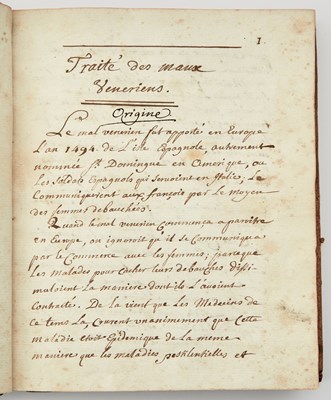 1
Traité des maux
Veneriens.
Origine
Le mal venerien fut apporté en Europe
L'an 1494. de L'isle Espagnole, autrement
nommée St. Domingue en Amerique, ou
Les Soldats Espagnols qui servoient en Italie, Le
Communiquerent aux françois par Le moyen
des femmes debauchées.
Quand le mal venerien commença a paroître
en Europe, on ignoroit qu'il se Communiqua
par le Commerce avec les femmes; parceque
Les Malades pour Cacher leurs debauches dissi-
mulaient La maniere dont ils L'avoient
Contracté. De La vient que Les Medecins de
ce tems La, Crurent unanimement que Cette
maladie etoit Epidemique de La meme
maniere que les maladies pestilentielles et